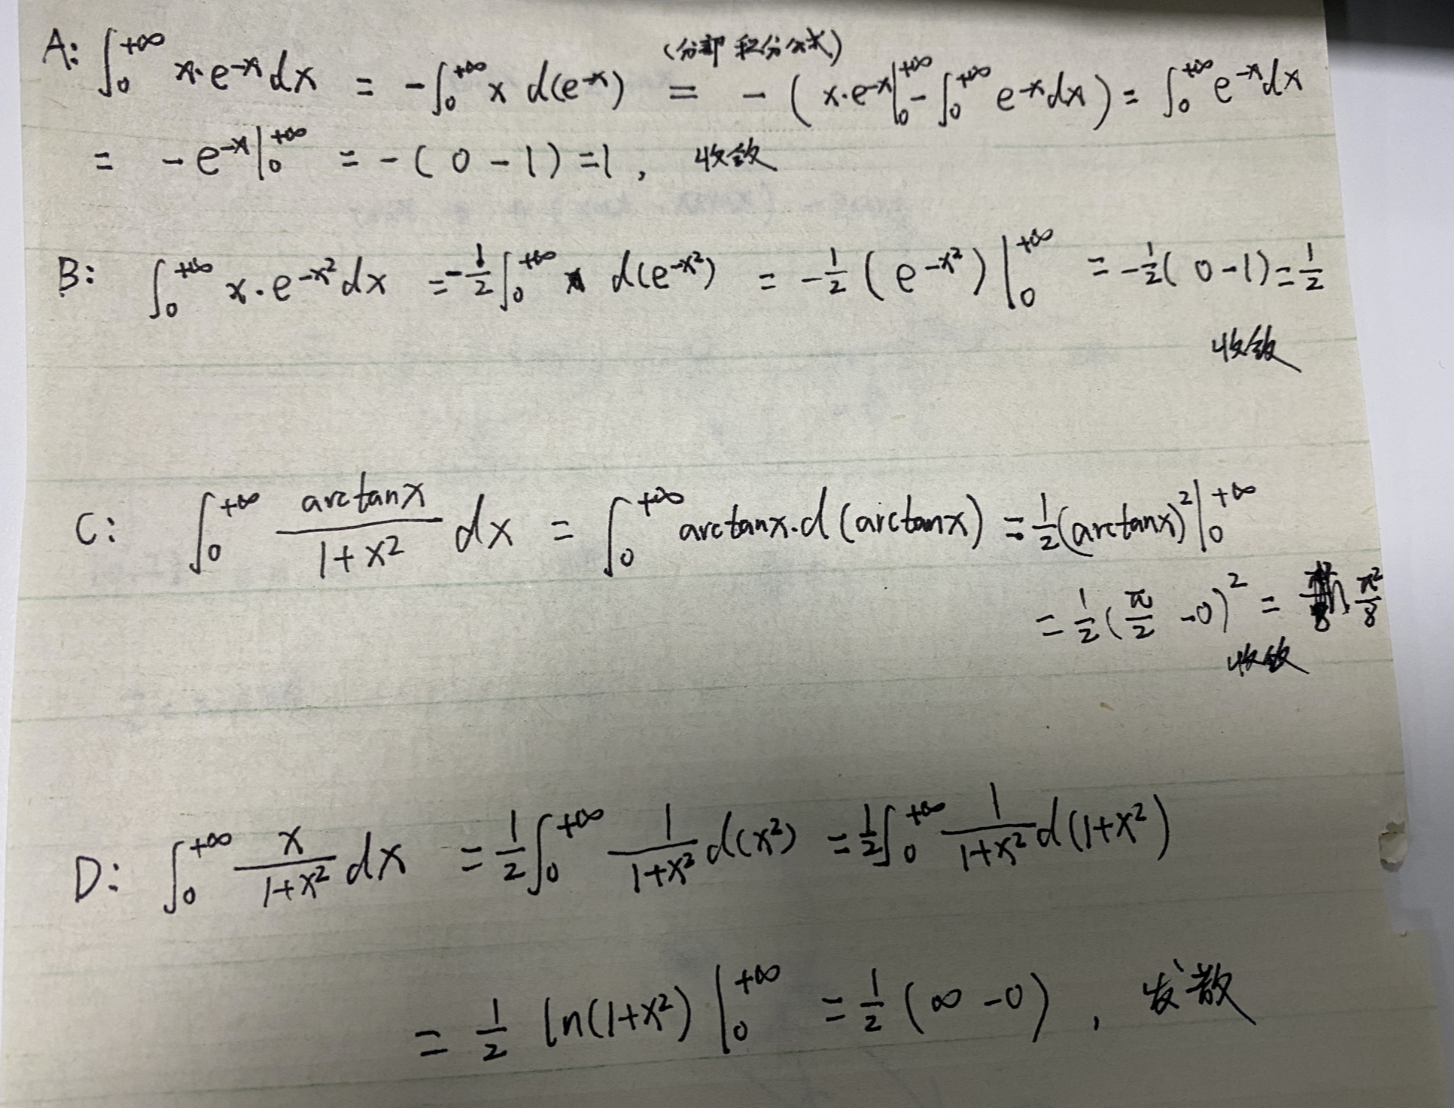 (分部积分公式)
A: ∫₀^{+∞} x·e^{-x}dx = -∫₀^{+∞} x d(e^{-x}) = -(x·e^{-x}|₀^{+∞} - ∫₀^{+∞} e^{-x}dx) = ∫₀^{+∞} e^{-x}dx
= -e^{-x}|₀^{+∞} = -(0-1)=1, 收敛
B: ∫₀^{+∞} x·e^{-x²}dx = -½∫₀^{+∞} d(e^{-x²}) = -½(e^{-x²})|₀^{+∞} = -½(0-1)=½
收敛
C: ∫₀^{+∞} arctanx/(1+x²) dx = ∫₀^{+∞} arctanx·d(arctanx) = ½(arctanx)²|₀^{+∞}
= ½(π/2 -0)² = π²/8
收敛
D: ∫₀^{+∞} x/(1+x²) dx = ½∫₀^{+∞} 1/(1+x²) d(x²) = ½∫₀^{+∞} 1/(1+x²) d(1+x²)
= ½ ln(1+x²)|₀^{+∞} = ½(∞-0), 发散